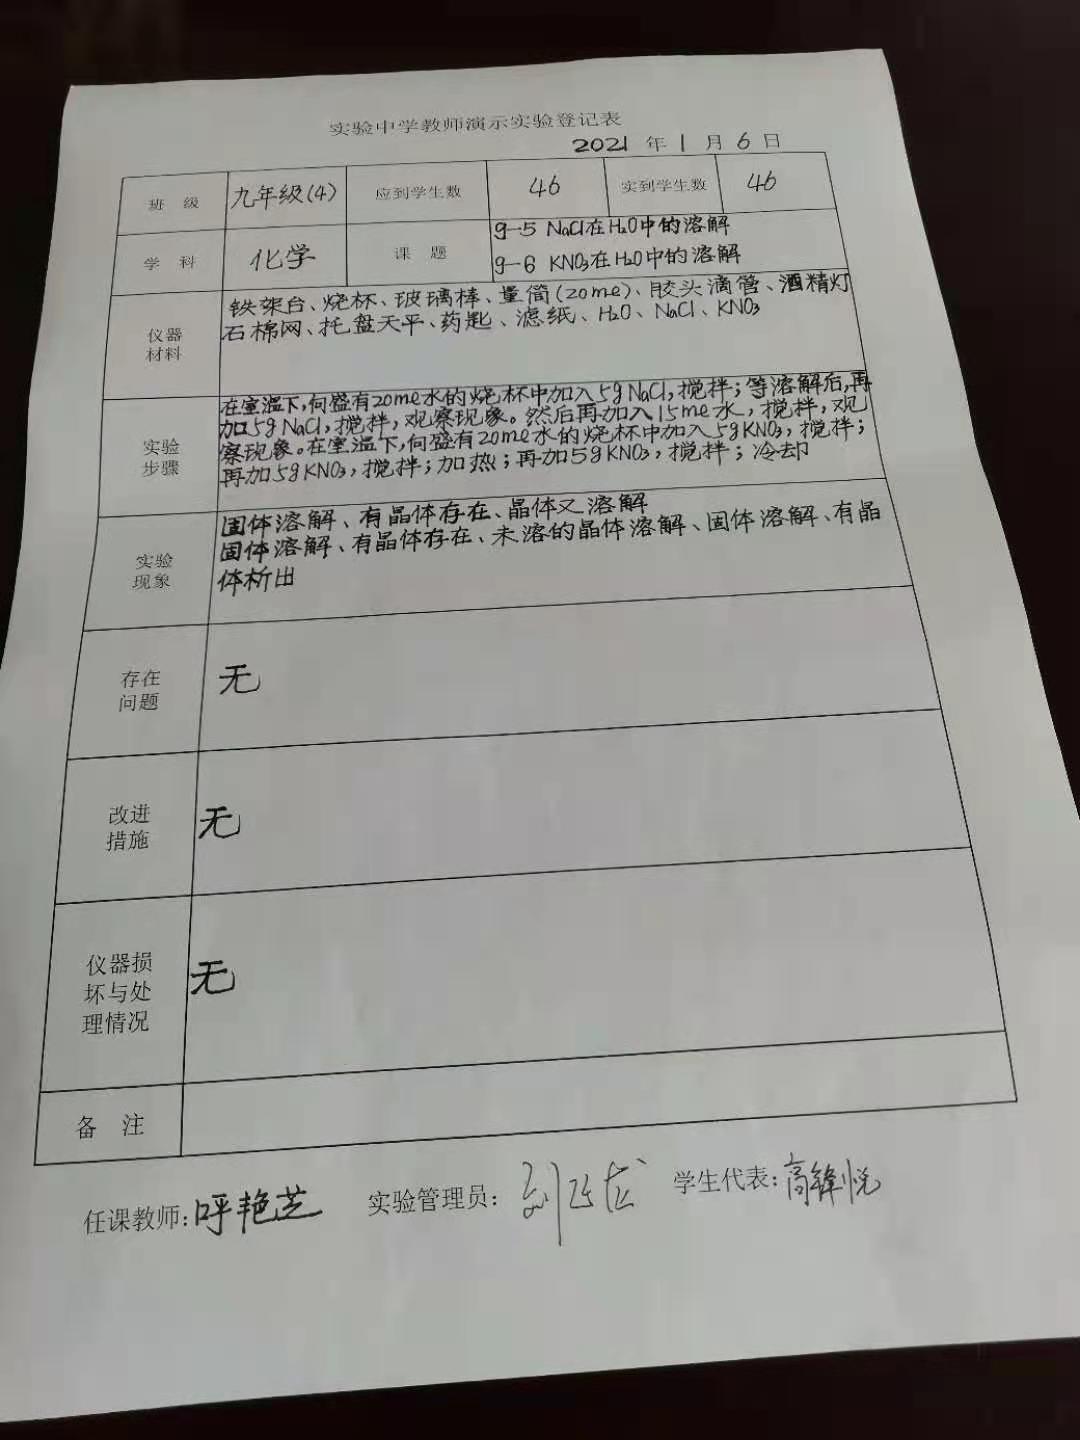 实验中学教师演示实验登记表
2021 年 1 月 6 日
班 级 九年级(4) 应到学生数 46 实到学生数 46
学 科 化学 课 题 9-5 NaCl在H₂O中的溶解
9-6 KNO₃在H₂O中的溶解
仪器
材料
铁架台、烧杯、玻璃棒、量筒(20ml)、胶头滴管、酒精灯
石棉网、托盘天平、药匙、滤纸、H₂O、NaCl、KNO₃
实验
步骤
在室温下,向盛有20ml水的烧杯中加入5gNaCl,搅拌;等溶解后,再
加5gNaCl,搅拌,观察现象。然后再加入15ml水,搅拌,观
察现象。在室温下,向盛有20ml水的烧杯中加入5gKNO₃,搅拌;
再加5gKNO₃,搅拌;加热;再加5gKNO₃,搅拌;冷却
实验
现象
固体溶解、有晶体存在、晶体又溶解
固体溶解、有晶体存在、未溶的晶体溶解、固体溶解、有晶
体析出
存在
问题
无
改进
措施
无
仪器损
坏与处
理情况
无
备 注
任课教师:呼艳芝 实验管理员: 学生代表:高